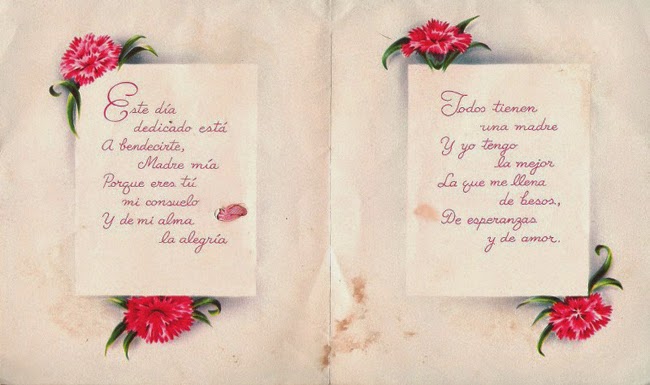 Este día
dedicado está
A bendecirte,
Madre mía
Porque eres tú
mi consuelo
Y de mi alma
la alegría
Todos tienen
una madre
Y yo tengo
la mejor
La que me llena
de besos,
De esperanzas
y de amor.